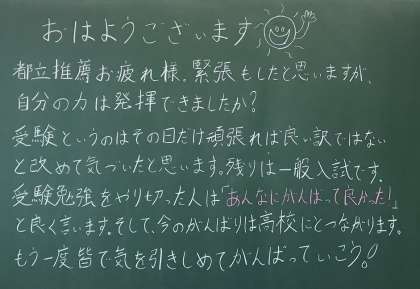 おはようございます
都立推薦お疲れ様。緊張もしたと思いますが、
自分の力は発揮できましたか?
受験というのはその日だけ頑張れば良い訳ではない
と改めて気づいたと思います。残りは一般入試です。
受験勉強をやり切った人は「あんなにがんばって良かった!」
と良く言います。そして、今のがんばりは高校にとつながります。
もう一度皆で気を引きしめてがんばっていこう!